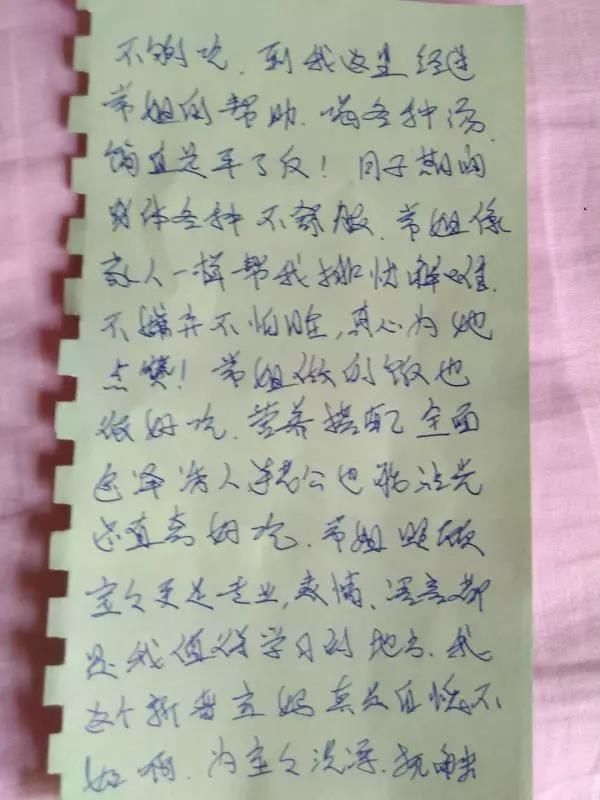 不够吃. 到我这里经过
常姐的帮助. 喝各种汤.
简直是平了反! 月子期间
身体各种不舒服. 常姐像
家人一样帮我排忧解难.
不嫌弃不怕脏, 真心为她
点赞! 常姐做的饭也
很好吃. 营养搭配全面
色泽诱人连老公也
还直夸好吃. 常姐照顾
宝宝更是专业, 表情、语言都
是我值得学习到地方. 我
这个新晋宝妈真是自愧不
如啊. 为宝宝洗澡. 抚触